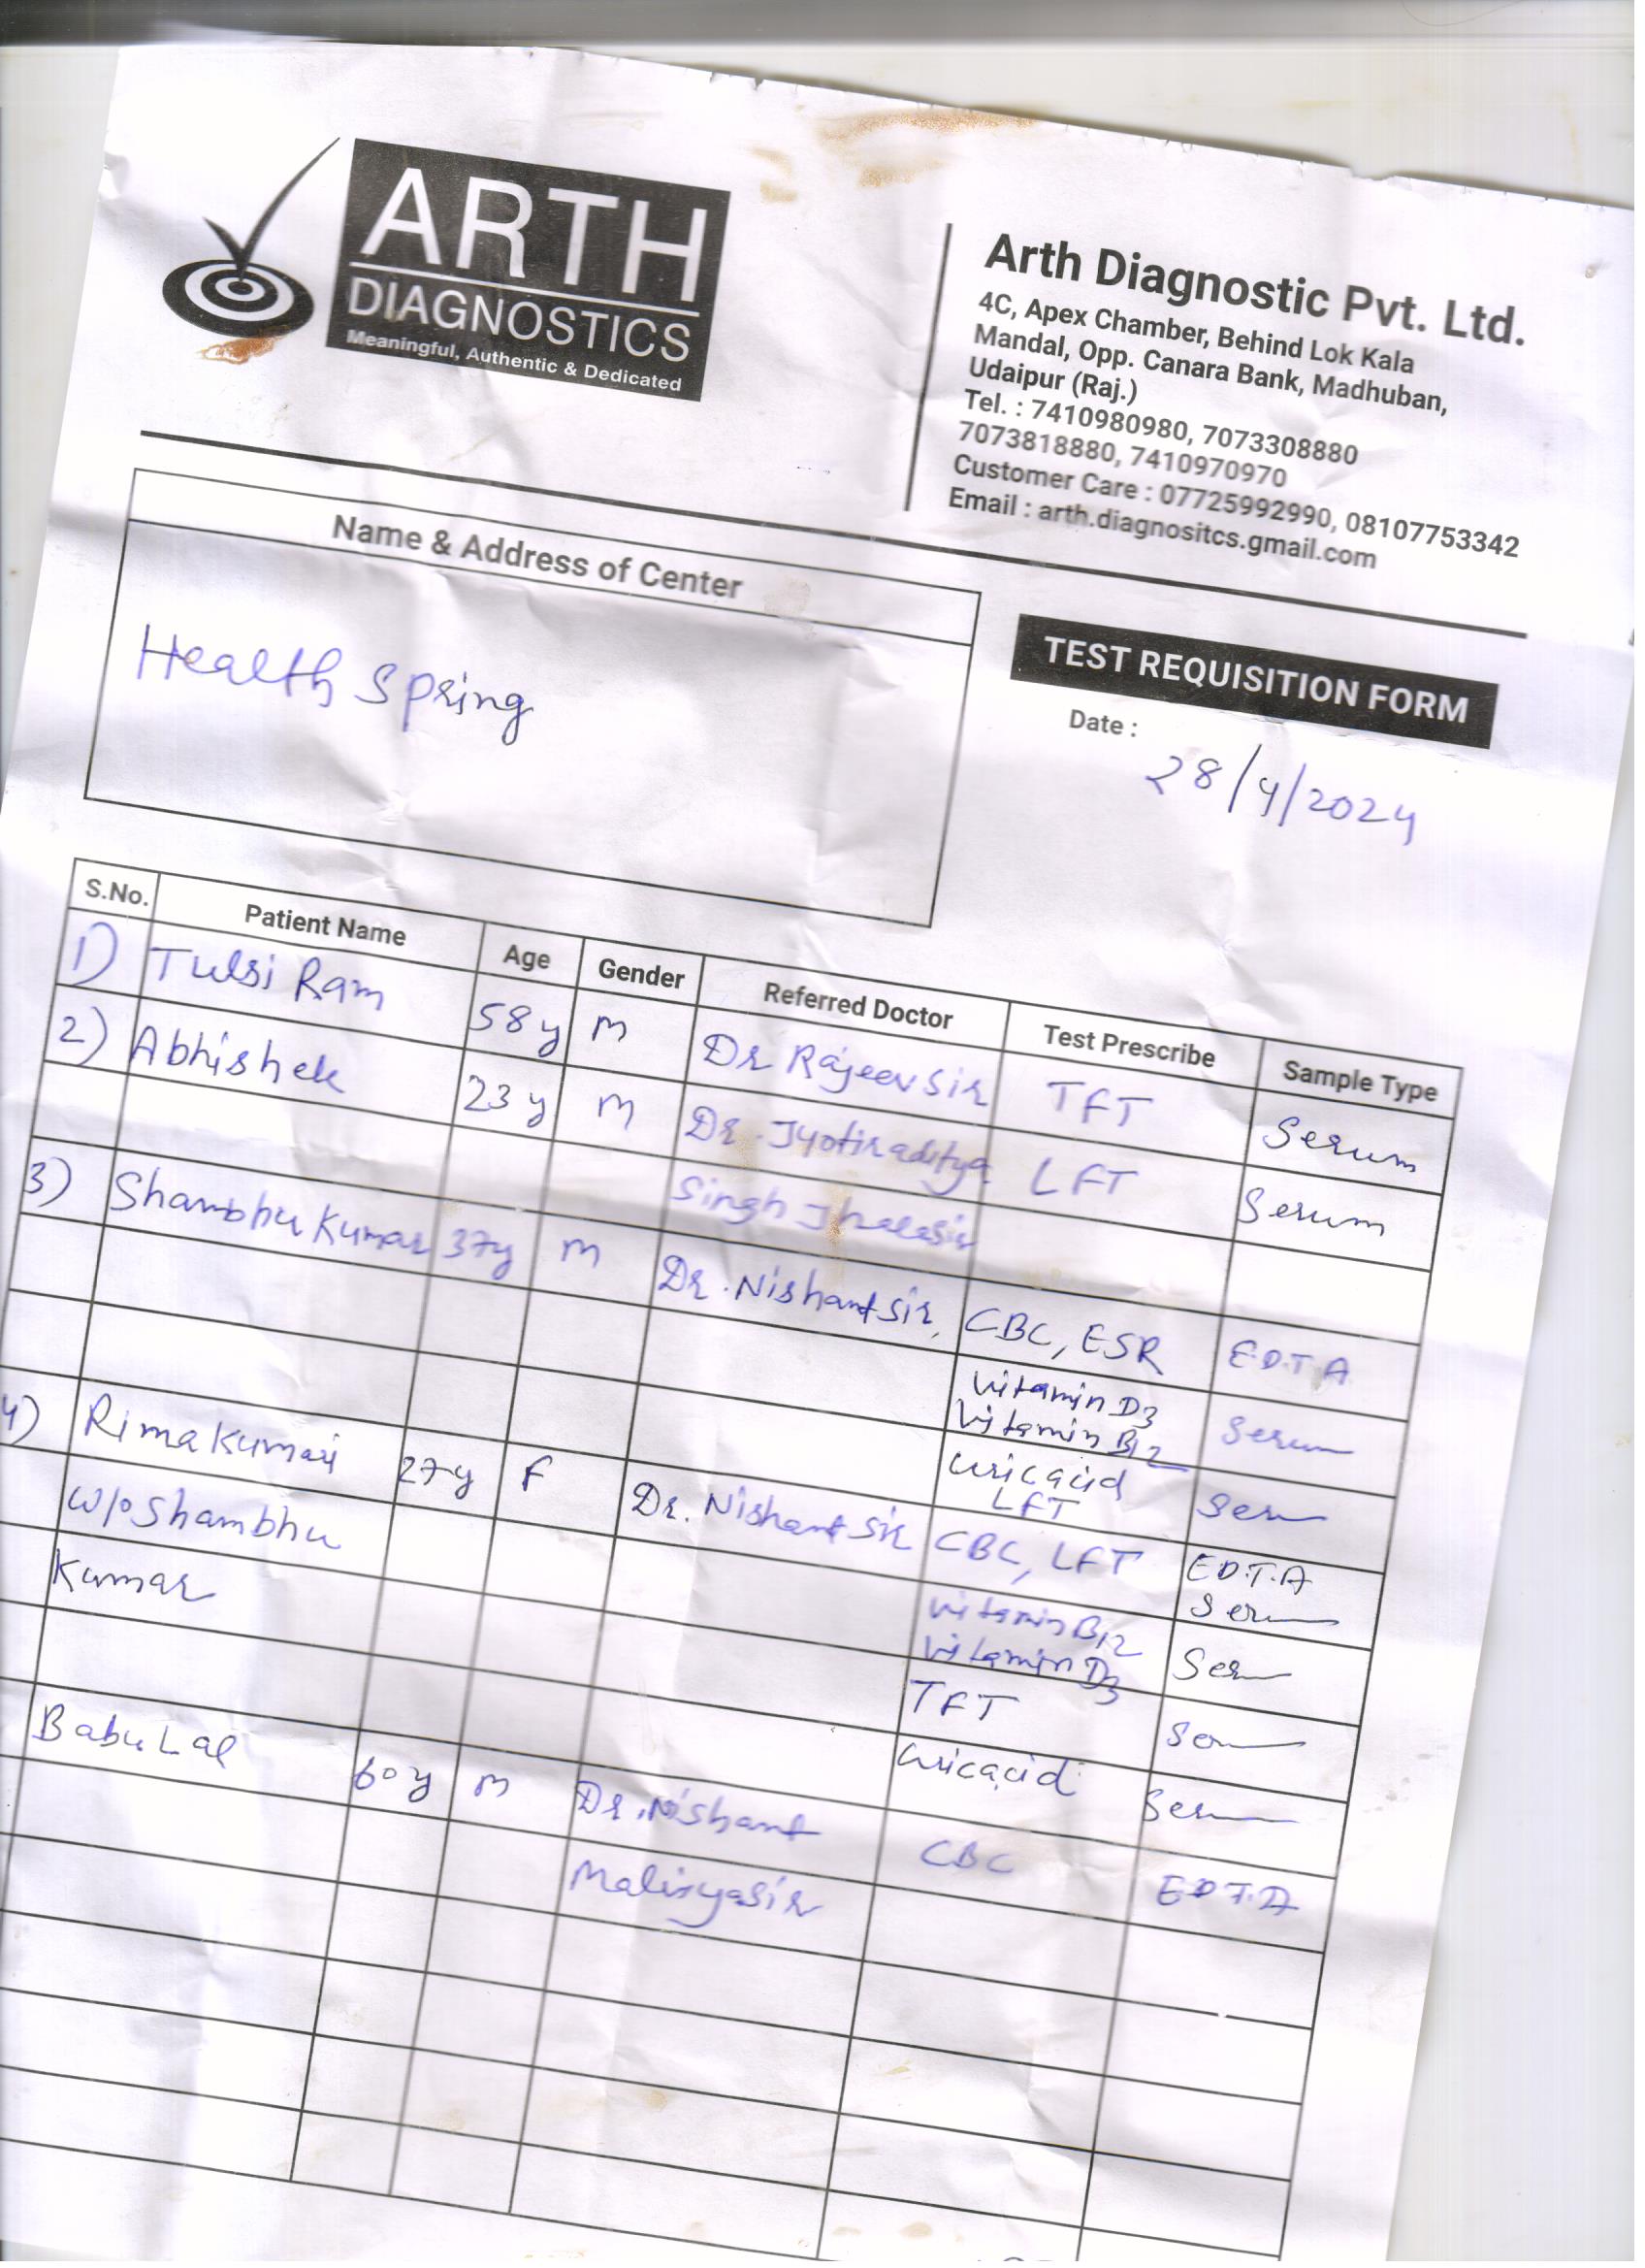 ARTH
DIAGNOSTICS
Meaningful, Authentic & Dedicated
Arth Diagnostic Pvt. Ltd.
4C, Apex Chamber, Behind Lok Kala
Mandal, Opp. Canara Bank, Madhuban,
Udaipur (Raj.)
Tel. : 7410980980, 7073308880
7073818880, 7410970970
Customer Care : 07725992990, 08107753342
Email : arth.diagnositcs.gmail.com
Name & Address of Center
Health Spring
TEST REQUISITION FORM
Date :
28/4/2024
S.No. Patient Name Age Gender Referred Doctor Test Prescribe Sample Type
1) Tulsi Ram 58y M Dr Rajeev Sir TFT Serum
2) Abhishek 23y M Dr. Jyotiraditya LFT Serum
Singh Jhala Sir
3) Shambhu Kumar 37y M Dr. Nishant Sir, CBC, ESR E.D.T.A
Vitamin D3
Vitamin B12 Serum
Uric acid
LFT Serum
4) Rima Kumari 27y F Dr. Nishant Sir CBC, LFT E.D.T.A
W/o Shambhu Serum
Kumar Vitamin B12
Vitamin D3 Serum
TFT Serum
Uric acid Serum
Babu Lal 60y M Dr. Nishant CBC E.D.T.A